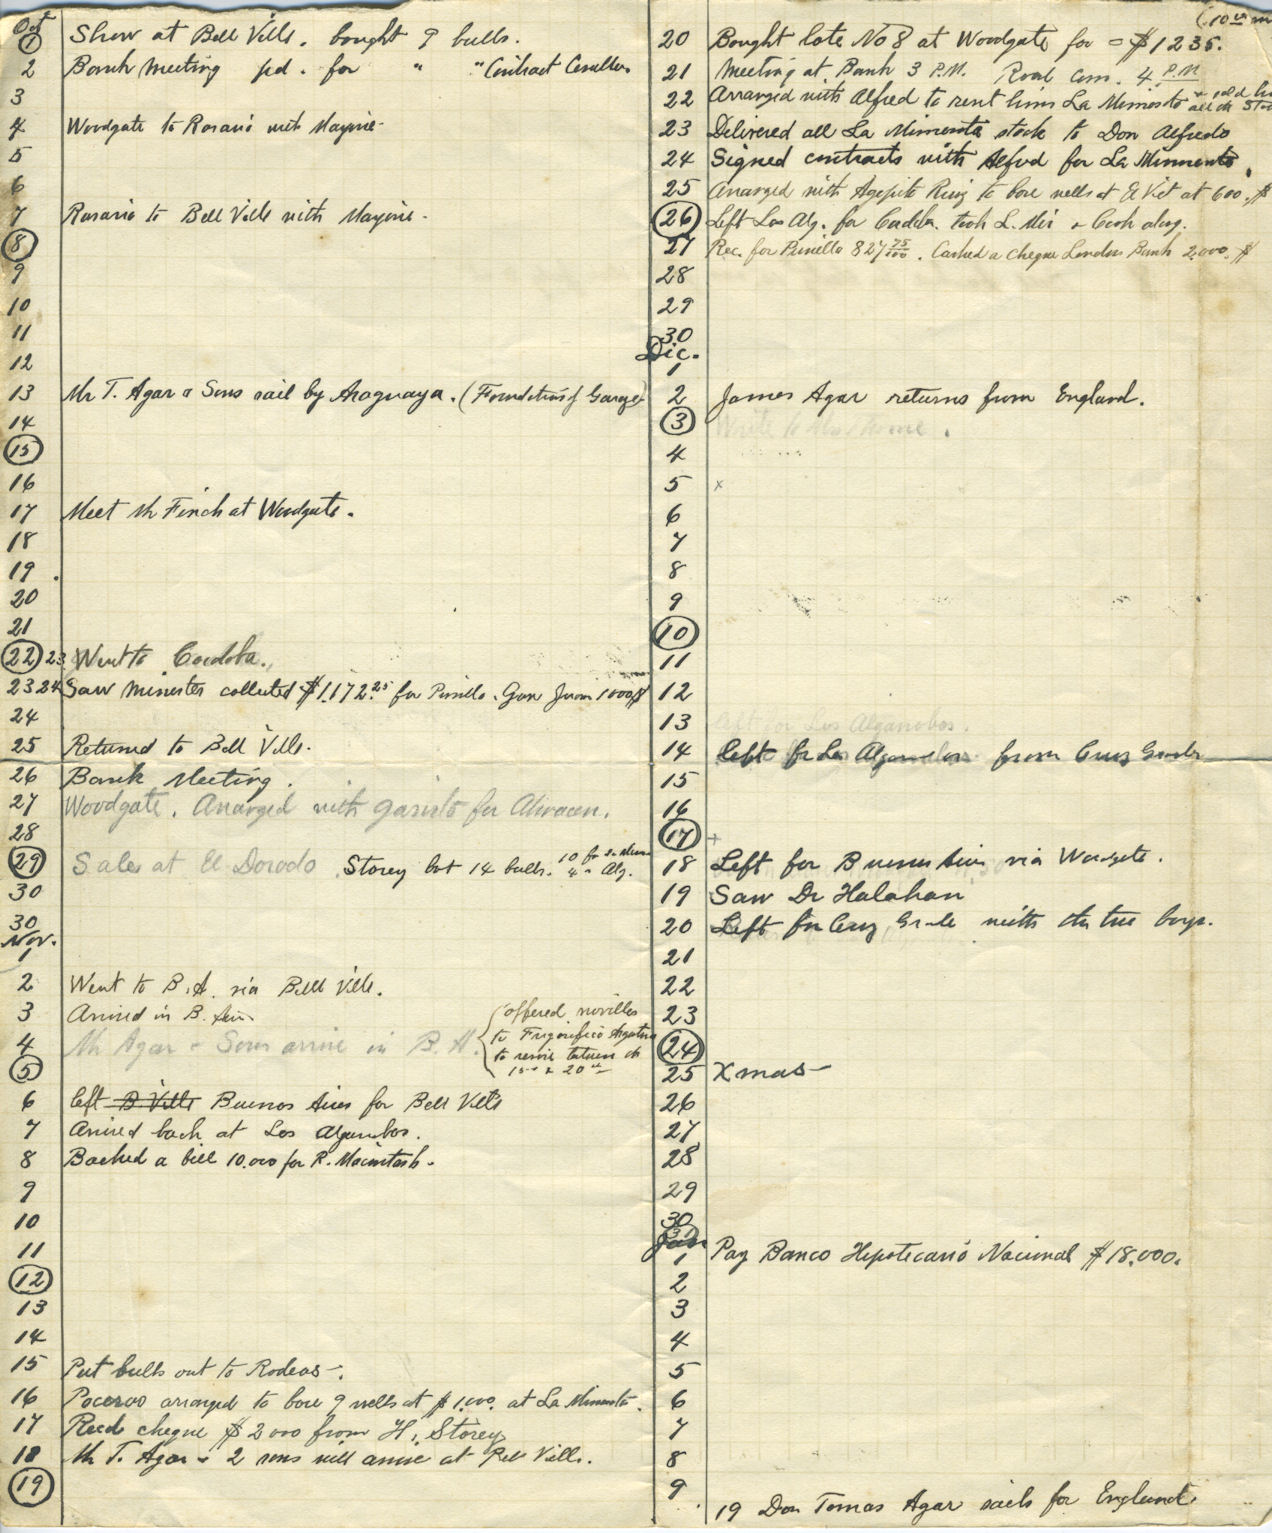 Oct
1 Show at Bell Ville. bought 9 bulls.
2 Bank Meeting pd. for " " Contract
3
4 Woodgate to Rosario with Maynie
5
6
7 Rosario to Bell Ville with Maynie.
8
9
10
11
12
13 Mr T. Agar & Sons sail by Araguaya. (Foundations of Garage)
14
15
16
17 Meet Mr Finch at Woodgate.
18
19
20
21
22 23 Went to Cordoba.
23 24 Saw Minister collected $1,172.25 for Punilla. Gave Juan 1000$
24
25 Returned to Bell Ville.
26 Bank Meeting.
27 Woodgate. Arranged with for
28
29 Sale at El Dorado Storey bot 14 bulls. 10 for La Mim
4 " Alg.
30
30
Nov.
1
2 Went to B.A. via Bell Ville.
3 Arrived in B. Aires
4 Mr Agar & Sons arrive in B.A.
(offered novillos
to Frigorifico Argentino
to between the
15th & 20th
5
6 left B Ville Buenos Aires for Bell Ville
7 Arrived back at Los Algarrobos.
8 Backed a bill 10.000 for R. Macintosh.
9
10
11
12
13
14
15 Put bulls out to Rodeos.
16 Poceros arranged to bore 9 wells at $1.000. at La Mimenta.
17 Recd cheque $2000 from H. Storey
18 Mr T. Agar & 2 sons will arrive at Bell Ville.
19
(10
20 Bought lote No 8 at Woodgate for $1235.
21 Meeting at Bank 3 P.M. Road Com. 4 P.M
22 Arranged with Alfred to rent him La Mimenta & sold him
all the Stock
23 Delivered all La Mimenta stock to Don Alfredo
24 Signed contracts with Alfred for La Mimenta.
25 Arranged with Agapito Ruiz to bore wells at El Viet at 600.$
26 Left Los Alg. for Cordoba. took L. & Cook along.
27 Rec. for Punilla 827 75/100. Cashed a cheque London Bank 2,000.$
28
29
30
Dic.
1
2 James Agar returns from England.
3 Write to
4
5 x
6
7
8
9
10
11
12
13 left for Los Algarrobos.
14 left for Los Algarrobos from Cruz Grande
15
16
17 +
18 Left for Buenos Aires via Woodgate.
19 Saw Dr Halahan
20 Left for Cruz Grande with the two boys.
21
22
23
24
25 Xmas
26
27
28
29
30
31
Jan
1 Pay Banco Hipotecario Nacional $18.000.
2
3
4
5
6
7
8
9
19 Don Tomas Agar sails for England.